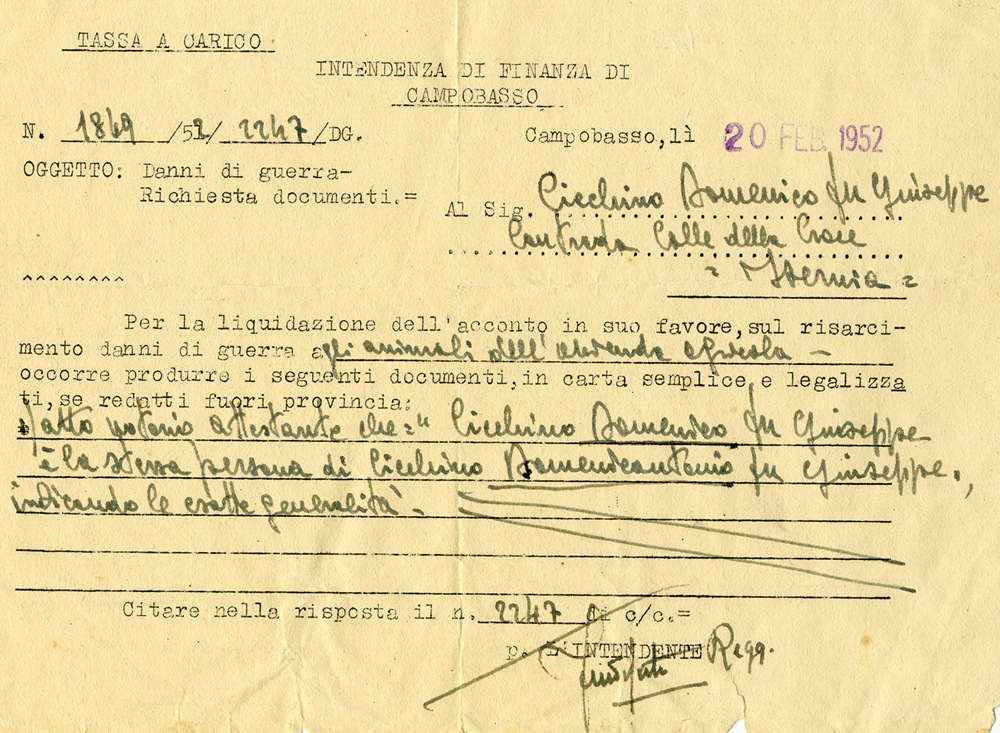 TASSA A CARICO
INTENDENZA DI FINANZA DI
CAMPOBASSO
N. 1869 /52/ 2247/DG.
Campobasso,lì 20 FEB. 1952
OGGETTO: Danni di guerra-
Richiesta documenti.=
Al Sig. Cicchino Domenico fu Giuseppe
Contrada Colle della Croce
= Isernia =
^^^^^^^^
Per la liquidazione dell'acconto in suo favore,sul risarci-
mento danni di guerra agli animali dell'azienda agricola -
occorre produrre i seguenti documenti,in carta semplice,e legalizza
ti,se redatti fuori provincia:
atto notorio attestante che=" Cicchino Domenico fu Giuseppe
è la stessa persona di Cicchino Domenicantonio fu Giuseppe.,
indicando le esatte generalità -
Citare nella risposta il n. 2247 di c/c.=
p. L'INTENDENTE Regg.